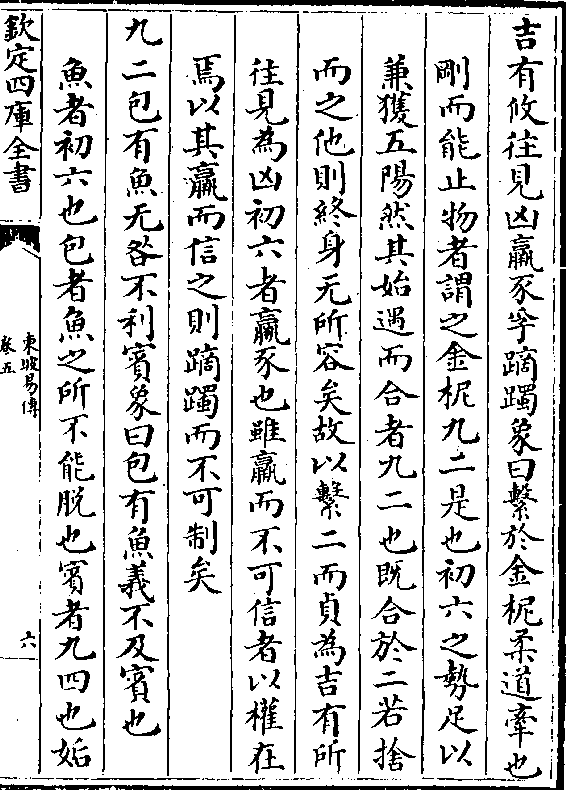 吉有攸往見凶羸豕孚蹢躅象曰繫於金柅柔道牽也
剛而能止物者謂之金柅九二是也初六之勢足以
兼獲五陽然其始遇而合者九二也既合於二若捨
而之他則終身无所容矣故以繫二而貞為吉有所
往見為凶初六者羸豕也雖羸而不可信者以權在
焉以其羸而信之則蹢躅而不可制矣
九二包有魚无咎不利賓象曰包有魚義不及賓也
魚者初六也包者魚之所不能脫也賓者九四也姤
欽定四庫全書
東坡易傳
卷五
六